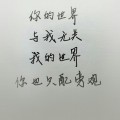 你的世界
与我无关
我的世界
你也只配旁观